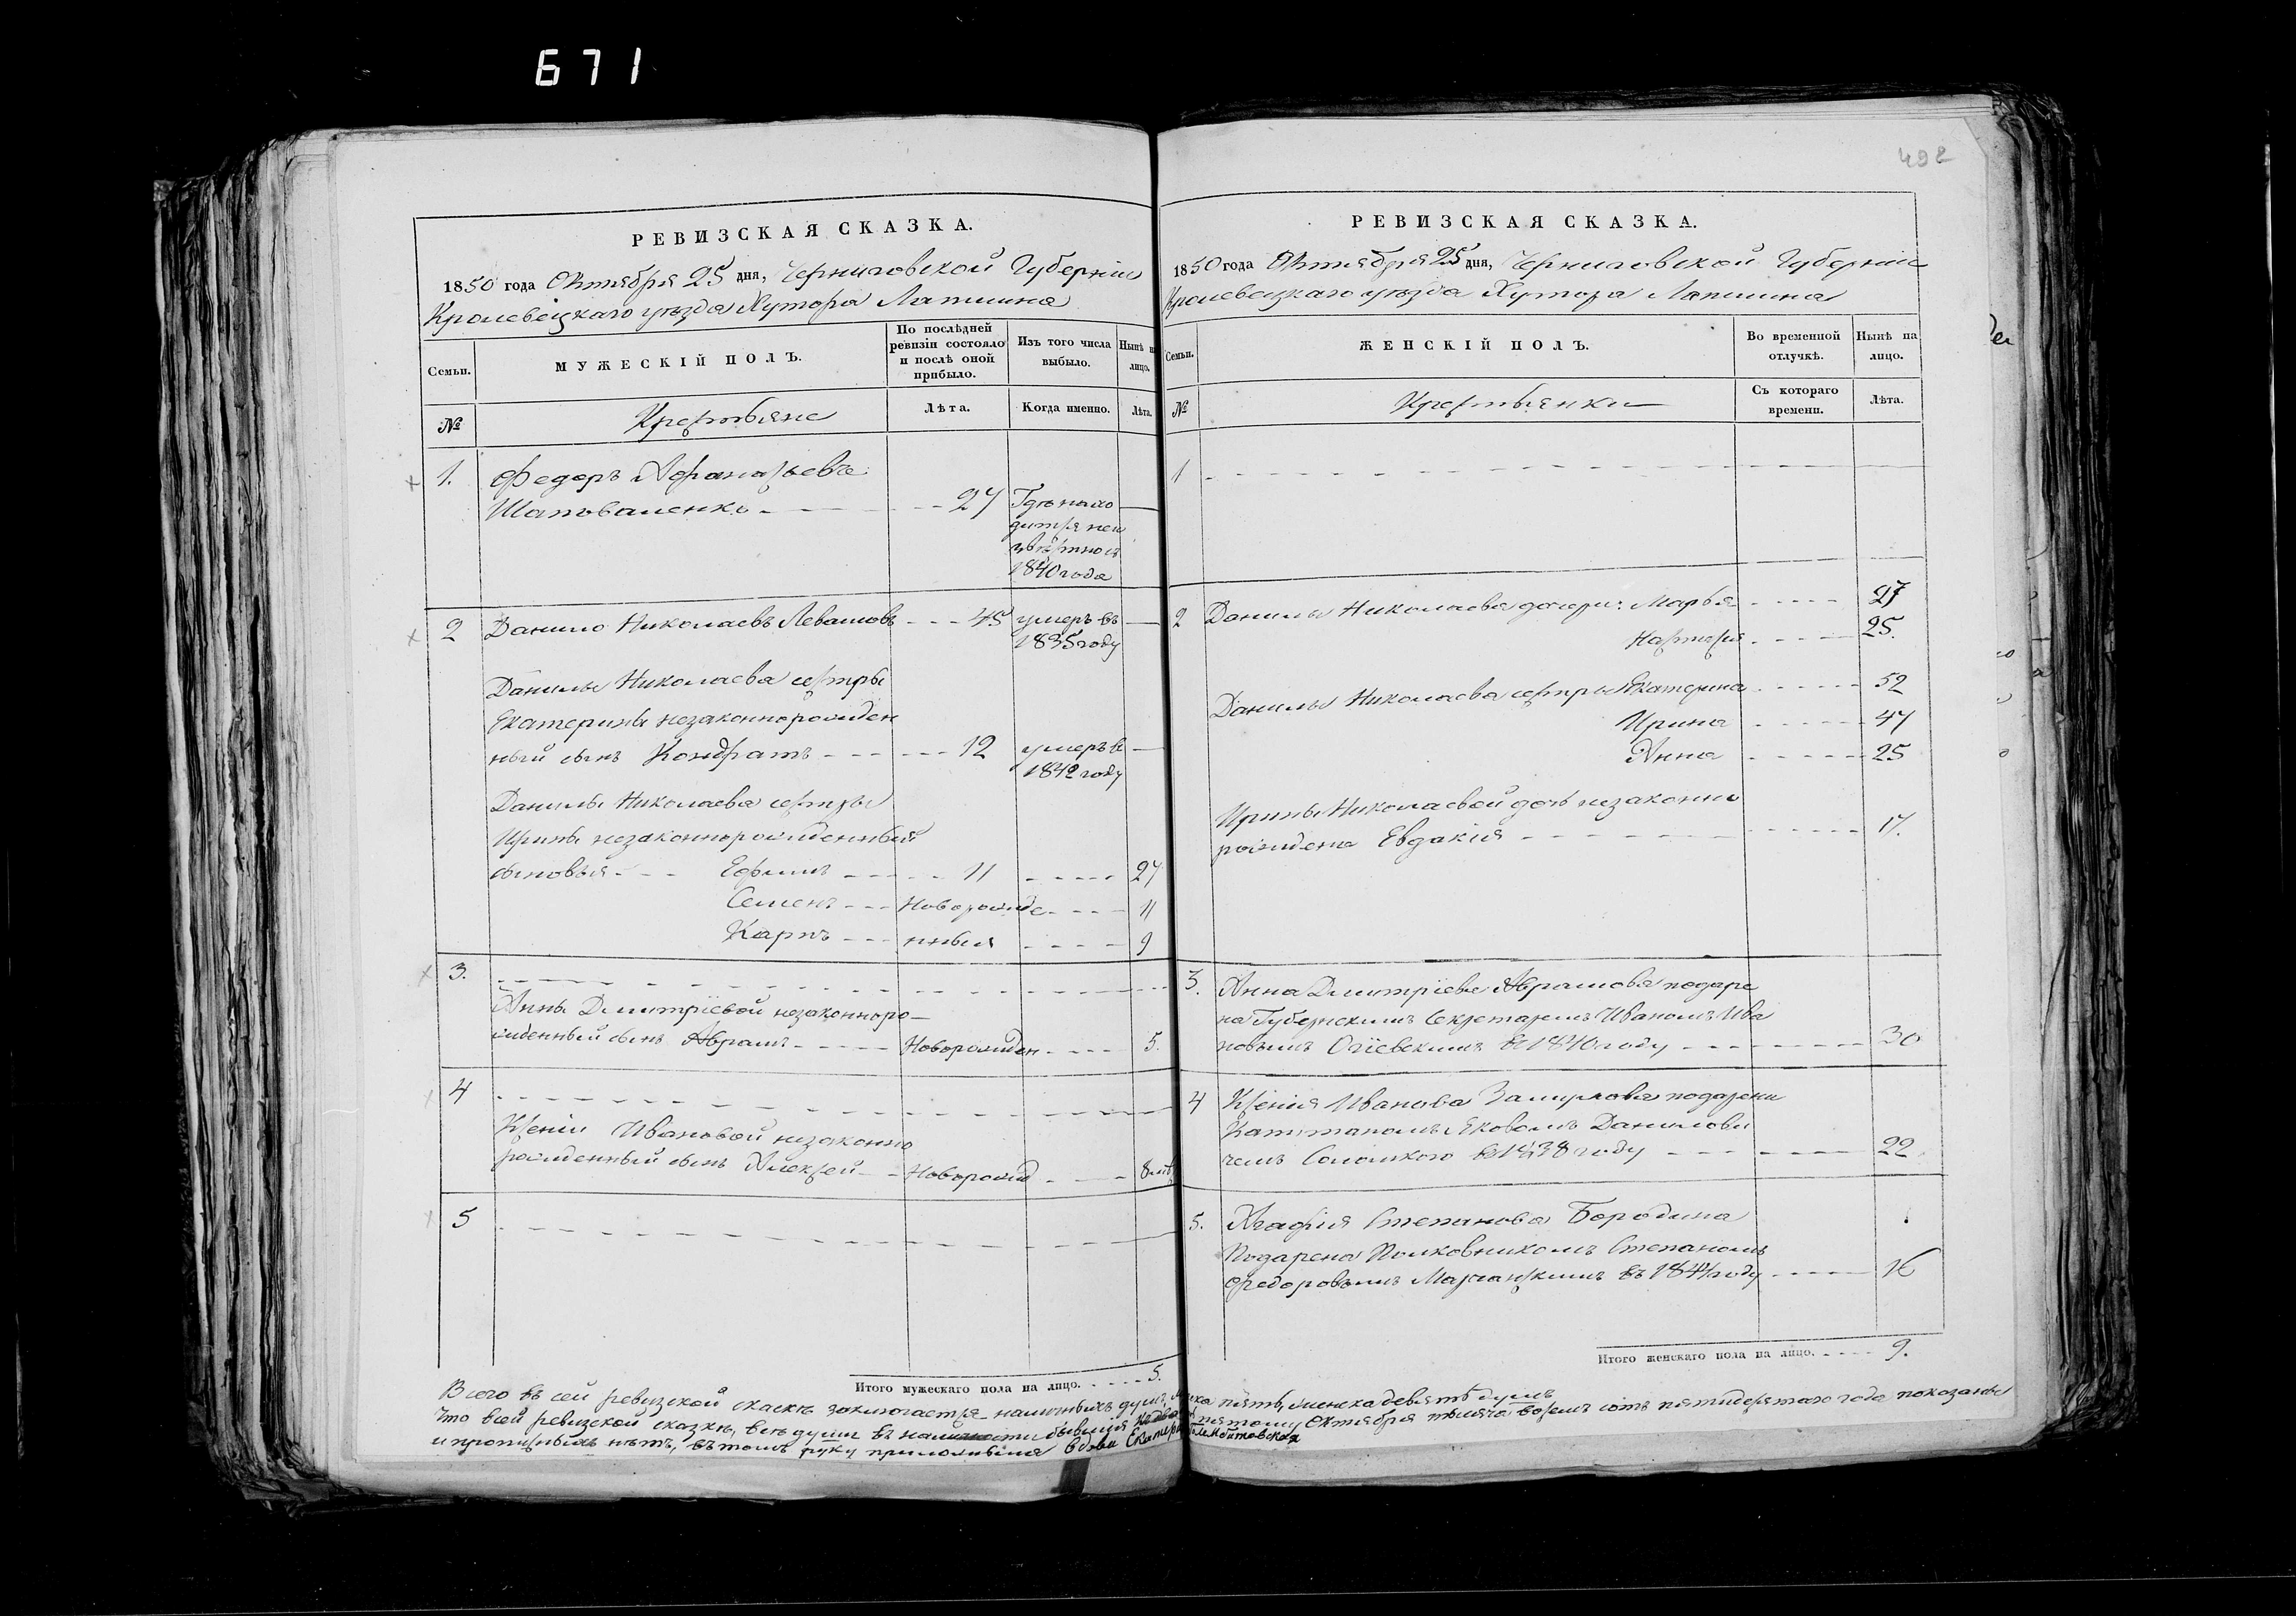 671
492
РЕВИЗСКАЯ СКАЗКА.
1850 года Октября 25 дня, Черниговской Губерніи
Кролевецкаго уезда Хутора Лапшина
Семьи.
МУЖЕСКІЙ ПОЛЪ.
По послѣдней ревизіи состояло и послѣ оной прибыло.
Изъ того числа выбыло.
Нынѣ на лицо.
№
Крестьяне
Лѣта.
Когда именно.
Лѣта.
1. Федоръ Афанасьевъ
Шаповаленко 27 Где нахо
дится неи
звѣстно съ
1840 года
2 Данило Николаевъ Левашовъ 45 умеръ въ
1835 году
Данилы Николаева сестры
Екатерины незаконнорожден
ный сынъ Кондратъ 12 умеръ въ
1842 году
Данилы Николаева сестры
Ирины незаконнорожденный
сыновья Ефимъ 11 27
Семенъ Новорожде 11
Карпъ нныя 9
3.
Анны Дмитріевой незаконноро-
жденный сынъ Абрамъ Новорожден 5.
4
Ксеніи Ивановой незаконно
рожденный сынъ Алексей Новорожд 8 мѣ
5
Итого мужескаго пола на лицо. 5.
РЕВИЗСКАЯ СКАЗКА.
1850 года Октября 25 дня, Черниговской Губерніи
Кролевецкаго уезда Хутора Лапшина
Семьи.
ЖЕНСКІЙ ПОЛЪ.
Во временной отлучкѣ.
Нынѣ на лицо.
№
Крестьянки
Съ котораго времени.
Лѣта.
1
2 Данилы Николаева дочери: Марья 27
Настасья 25.
Данилы Николаева сестры Екатерина 52
Ирина 47
Анна 25
Ирины Николаевой дочь незаконно
рождена Евдакія 17.
3. Анна Дмитріева Абрамова подаре
на Губернскимъ Секретаремъ Иваномъ Ива
новымъ Огіевскимъ въ 1840 году 30
4 Ксенія Иванова подарена
Капитаномъ Яковомъ Данилови
чемъ въ 1838 году 22
5. Агафія Степанова Бородина
Подарена Полковникомъ Степаномъ
Федоровымъ въ 1844 году 16
Итого женскаго пола на лицо. 9.
Всего въ сей ревизской сказкѣ заключается наличныхъ душъ мужеска пять, женска девять душъ
Что въ сей ревизской сказкѣ, все души въ наличности бывшія пятому Октября тысяча восемь сотъ пятидесятаго года показаны
и прописныхъ нѣтъ, въ томъ руку приложила вдова